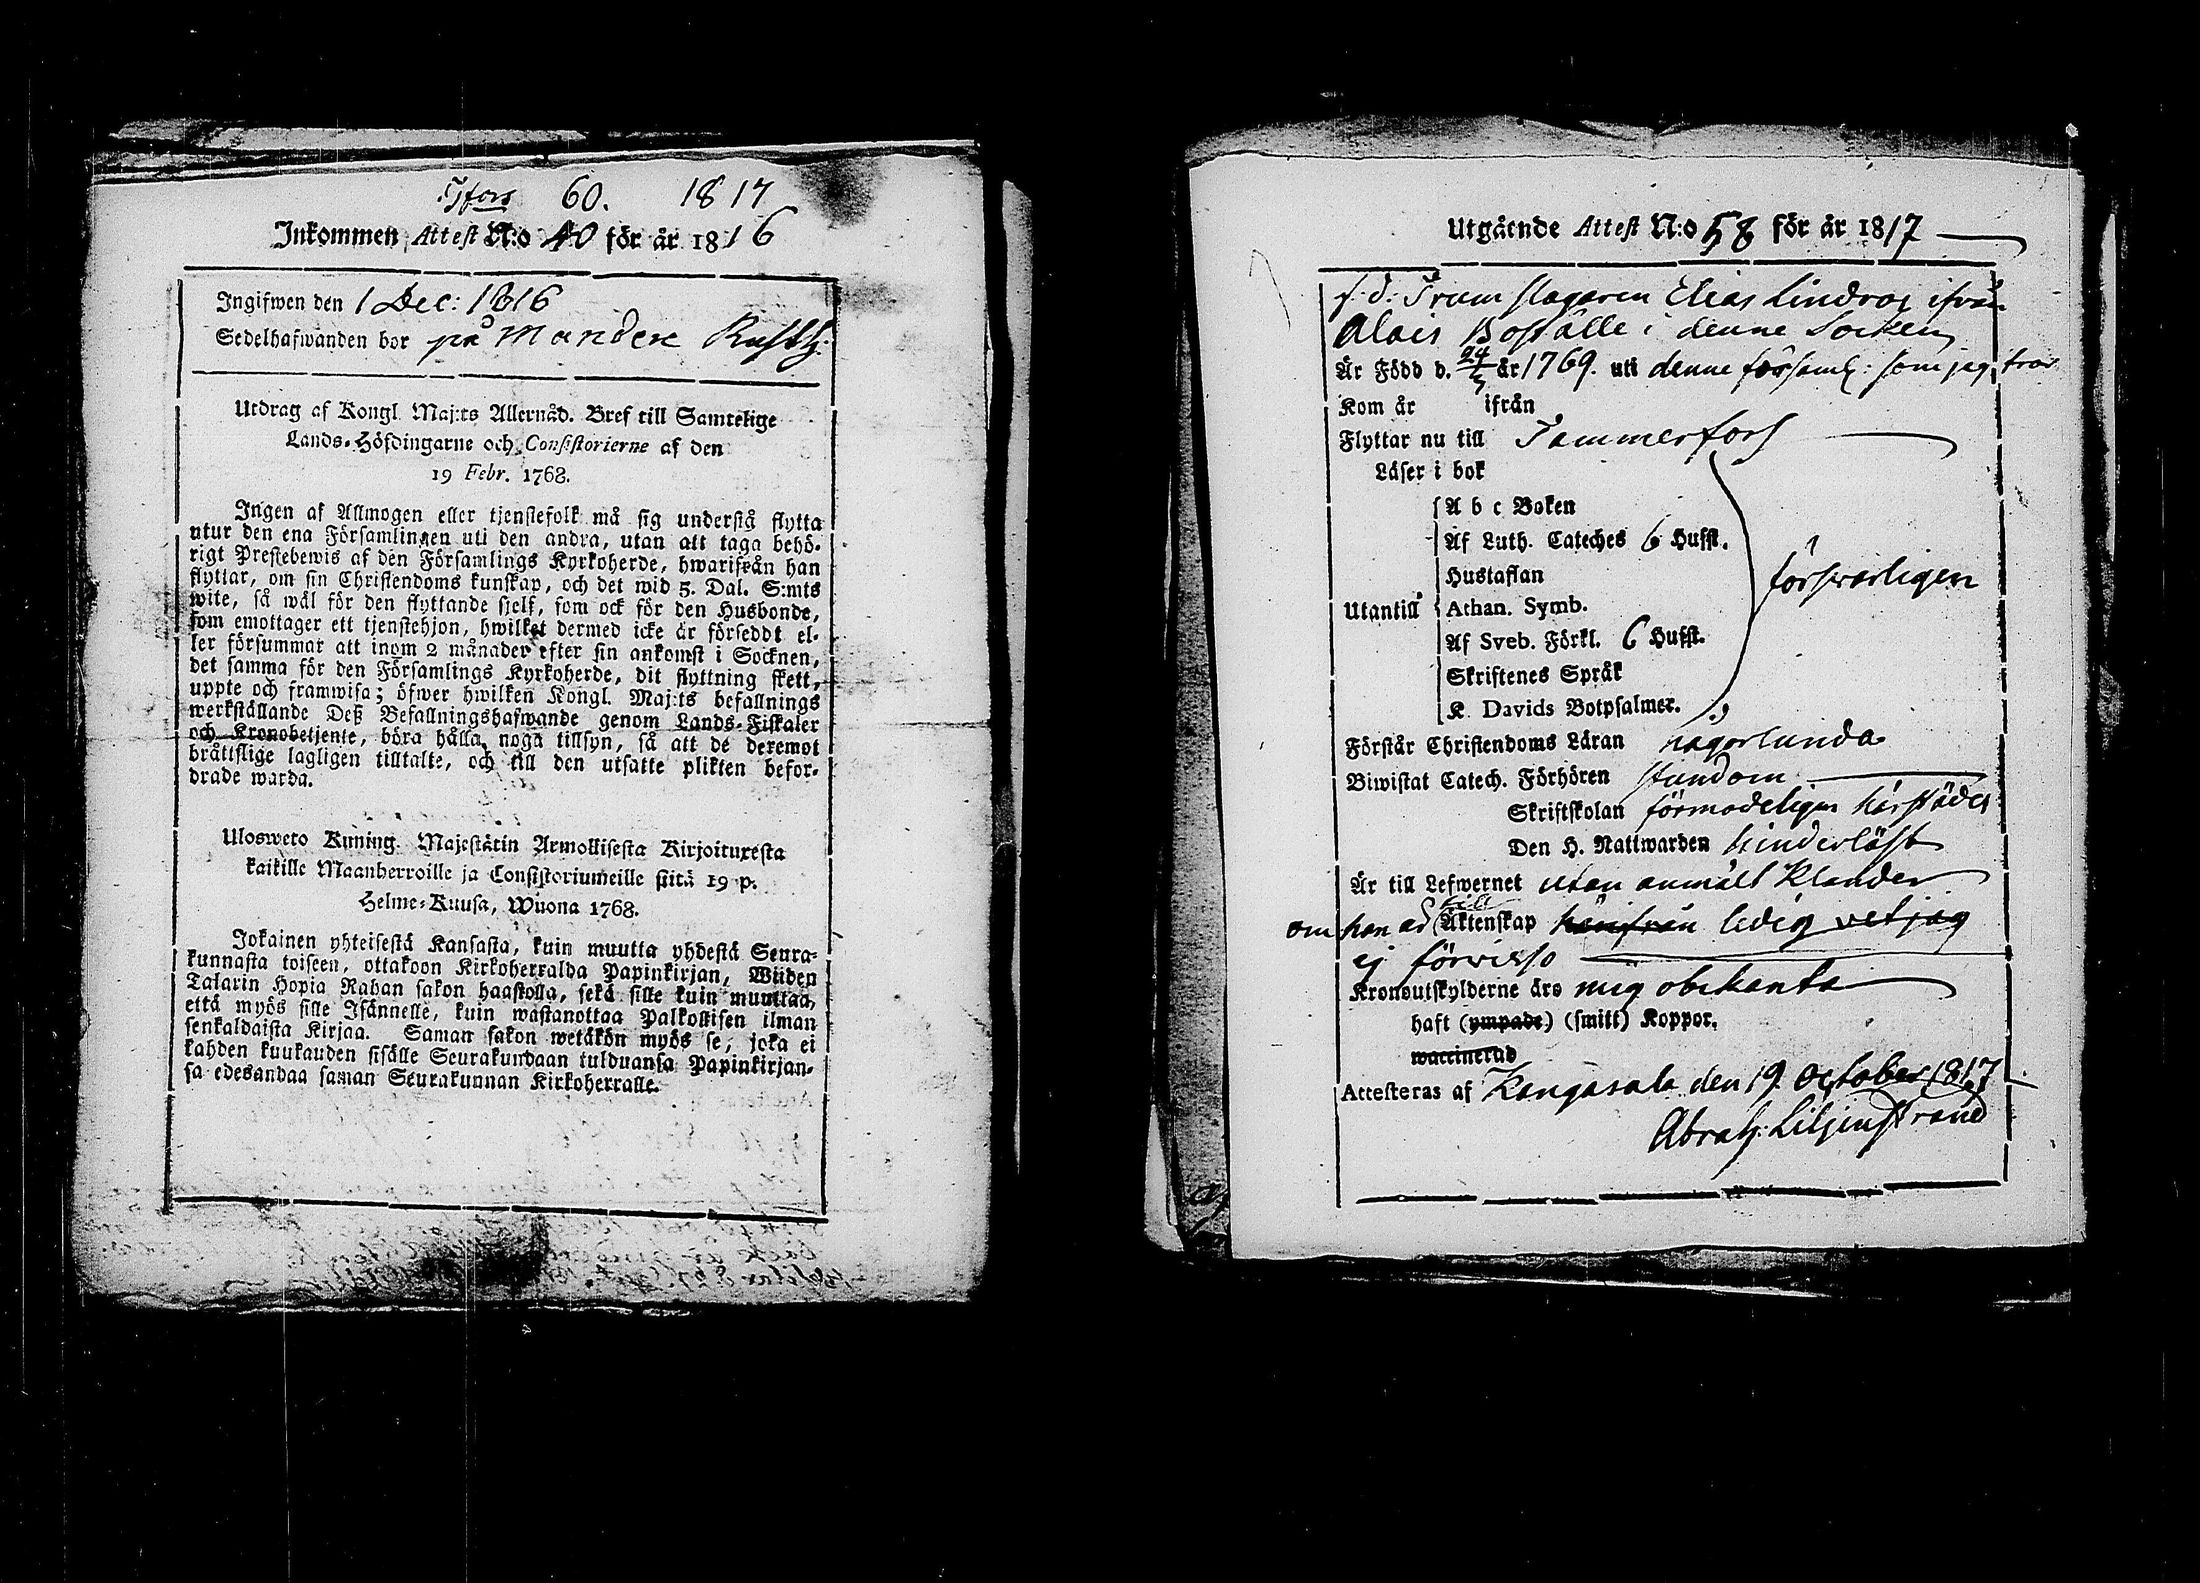 Tfors 60. 1817
Inkommen Attest N:o 40 för år 1816
Ingifwen den 1 Dec: 1816
Sedelhafwanden bor på Mandere Rusth:
Utdrag af Kongl. Maj:ts Allernåd. Bref till Samtelige
Lands-Höfdingarne och Consistorierne af den
19 Febr. 1768.
Ingen af Allmogen eller tjenstefolk må sig understå flytta
utur den ena Församlingen uti den andra, utan att taga behö-
rigt Prestebewis af den Församlings Kyrkoherde, hwarifrån han
flyttar, om sin Christendoms kunskap, och det wid 5. Dal. S:mts
wite, så wäl för den flyttande sjelf, som ock för den Husbonde,
som emottager ett tjenstehjon, hwilket dermed icke är förseddt el-
ler försummar att inom 2 månader efter sin ankomst i Socknen,
det samma för den Församlings Kyrkoherde, dit flyttning skett,
uppte och framwisa; öfwer hwilken Kongl. Maj:ts befallnings
werkställande Deß Befallningshafwande genom Lands-Fiskaler
och Kronobetjente, böra hålla noga tillsyn, så att de deremot
bråttslige lagligen tilltalte, och till den utsatte plikten befor-
drade warda.
Ulosweto Kuning. Majestätin Armollisesta Kirjoituxesta
kaikille Maanherroille ja Consistoriumeille siitä 19 p.
Helme-Kuusa, Wuona 1768.
Jokainen yhteisestä Kansasta, kuin muutta yhdestä Seura-
kunnasta toiseen, ottakoon Kirkoherralda Papinkirjan, Wiiden
Talarin Hopia Rahan sakon haastolla, sekä sille kuin muuttaa,
että myös sille Isännelle, kuin wastanottaa Palkollisen ilman
senkaldaista Kirjaa. Saman sakon wetäkön myös se, joka ei
kahden kuukauden sisälle Seurakundaan tulduansa Papinkirjan-
sa edesandaa saman Seurakunnan Kirkoherralle.
Utgående Attest N:o 58 för år 1817
f. d. Trumslagaren Elias Lindros ifrån
Alais Boställe i denne Socken
Är Född d. 24/3 år 1769. uti denne församl: som jag tror
Kom år ifrån
Flyttar nu till Tammerfors
Läser i bok
A b c Boken
Af Luth. Cateches 6 Hufst.
Hustaflan
Utantill Athan. Symb. försvarligen
Af Sveb. Förkl. 6 Hufst.
Skriftenes Språk
K. Davids Botpsalmer.
Förstår Christendoms Läran någorlunda
Biwistat Catech. Förhören stundom
Skriftskolan förmodeligen härstädes
Den H. Nattwarden hinderlöst
Är till Lefwernet utan anmält Klander
om han är till Äktenskap härifrån ledig vet jag
ej förvisso
Kronoutskylderne äro mig obekanta
haft (ympade) (smitt) Koppor.
waccinerad
Attesteras af Kangasala den 19 October 1817
Abrah: Liljenstrand